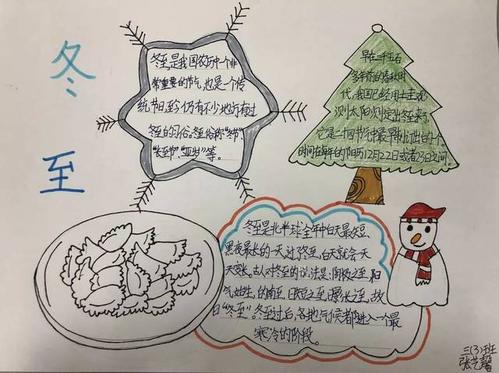 冬
至
冬至是我国农历中一个非
常重要的节气,也是一个传
统节日,至今仍有不少地方有过
冬至的习俗。冬至俗称"冬节"、
"长至节"、"亚岁"等。
早在二千五百
多年前的春秋时
代,我国已经用土圭观
测太阳测定出冬至了,
它是二十四节气中最早制订出的一个,
时间在每年的阳历12月22日或者23日之间
冬至是北半球全年中白天最短、
黑夜最长的一天,过了冬至,白天就会一天
天变长。古人对冬至的说法是:阴极之至,阳
气始生,日南至,日短之至,日影长之至,故
曰"冬至"。冬至过后,各地气候都进入一个最
寒冷的阶段。
三(3)班